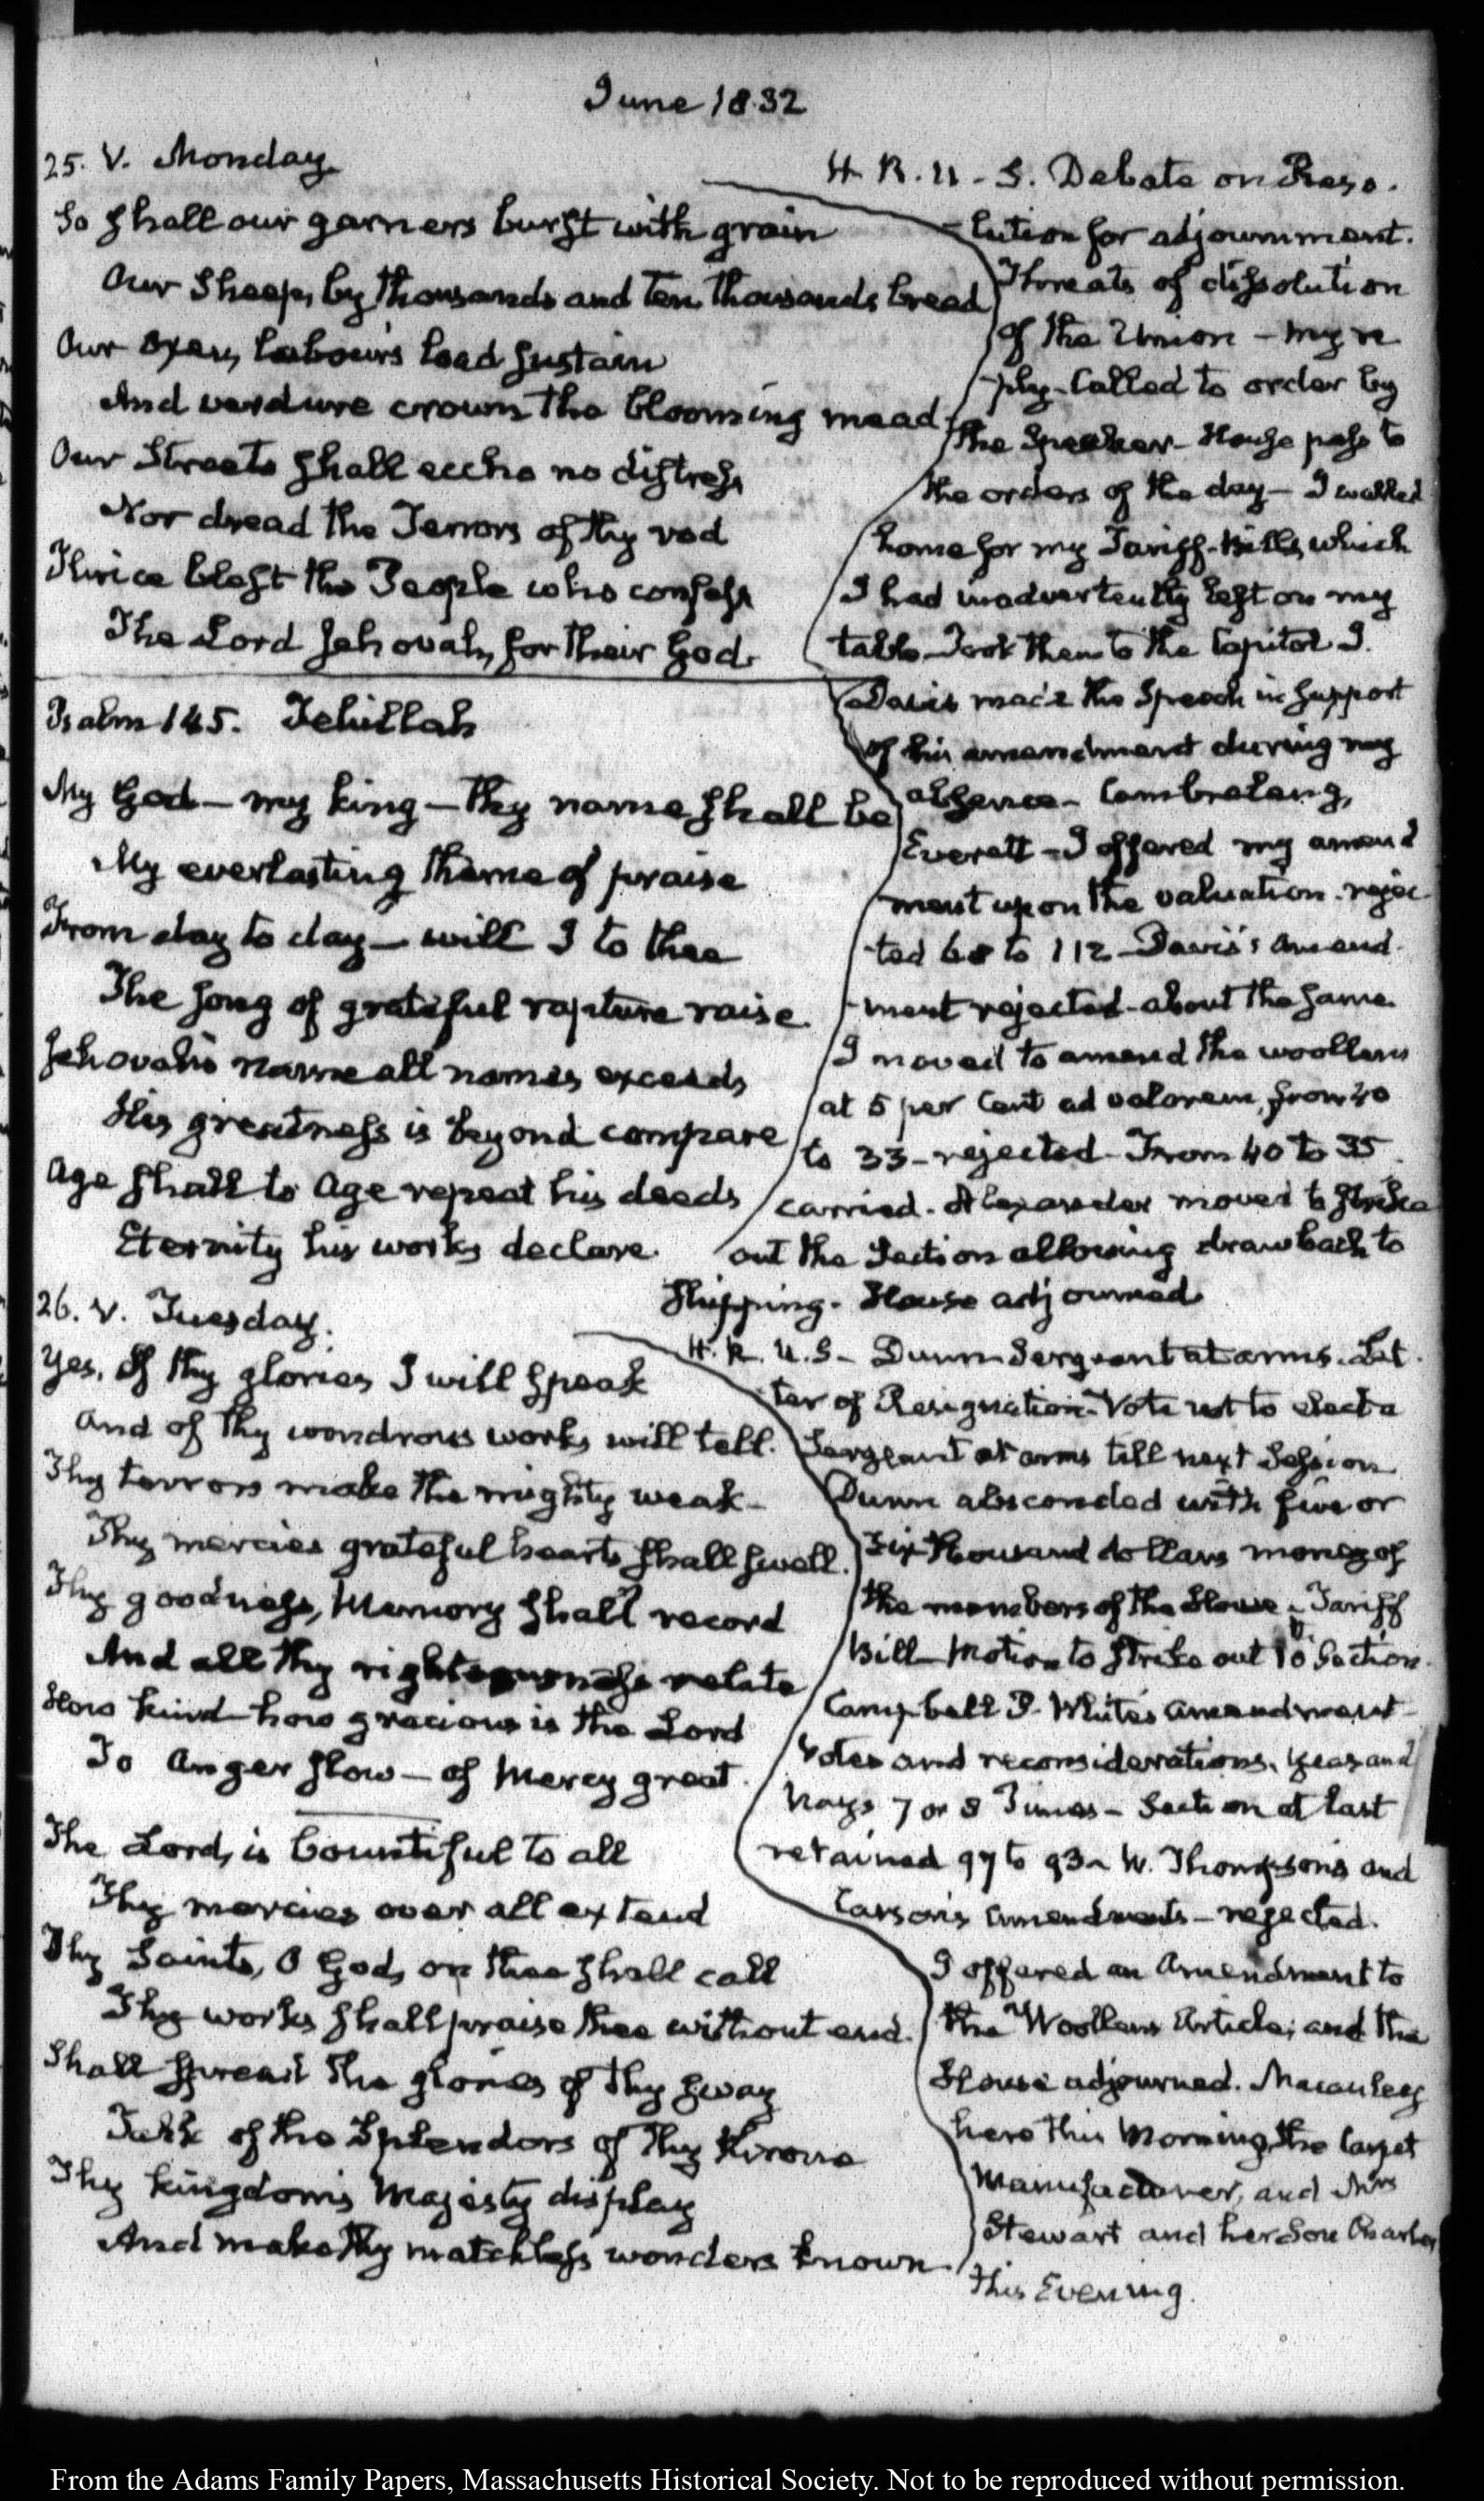 June 1832
25. V. Monday
So shall our garners burst with grain
Our Sheep, by thousands and ten thousands breed
Our oxen, labour's load sustain
And verdure crown the blooming mead.
Our Streets shall eccho no distress
Nor dread the Terrors of thy rod
Thrice blest the People who confess
The Lord Jehovah, for their God.
Psalm 145. Tehillah
My God — my king — thy name shall be
My everlasting theme of praise
From day to day — will I to thee
The song of grateful rapture raise.
Jehovah's name all names exceeds
His greatness is beyond compare
Age shall to Age repeat his deeds
Eternity his works declare.
H. R. U.S. Debate on Reso-
-lution for adjournment.
Threats of dissolution
of the Union — my re
-ply. Called to order by
the Speaker — House pass to
the orders of the day — I walked
home for my Tariff-Bills, which
I had inadvertently left on my
table. Took them to the Capitol J.
Davis made the Speech in support
of his amendment during my
absence — Cambreleng,
Everett — I offered my amend
ment upon the valuation. rejec-
-ted 68 to 112 — Davis's Amend-
-ment rejected — about the same.
I moved to amend the woollens
at 5 per Cent ad valorem, from 40
to 33 — rejected — From 40 to 35
carried. Alexander moved to strike
out the Section allowing drawback to
Shipping. House adjourned
26. V. Tuesday.
Yes, Of thy glories I will speak
And of thy wondrous works will tell.
Thy terrors make the mighty weak —
Thy mercies grateful hearts shall swell.
Thy goodness, Memory shall record
And all thy righteousness relate
How kind — how gracious is the Lord
To Anger slow — of Mercy great.
The Lord, is bountiful to all
Thy mercies over all extend
Thy Saints, O God, on thee shall call
Thy works shall praise thee without end.
Shall spread the glories of thy sway
Talk of the Splendors of thy throne
Thy kingdom's Majesty display
And make thy matchless wonders known.
H. R. U.S — Dunn Sergeant at arms. Let-
-ter of Resignation. Vote not to elect a
Sergeant at arms till next Session
Dunn absconded with five or
Six thousand dollars money of
the members of the House. Tariff
Bill — Motion to strike out 10th Section.
Campbell P. White's Amendment —
Votes and reconsiderations, Yeas and
Nays 7 or 8 Times — Section at last
retained 97 to 93 — W. Thompson's and
Carson's Amendments — rejected.
I offered an Amendment to
the Woollens Article; and the
House adjourned. Macauley
here this Morning, the Carpet
Manufacturer, and Mrs
Stewart and her Son Charles
this Evening.
From the Adams Family Papers, Massachusetts Historical Society. Not to be reproduced without permission.